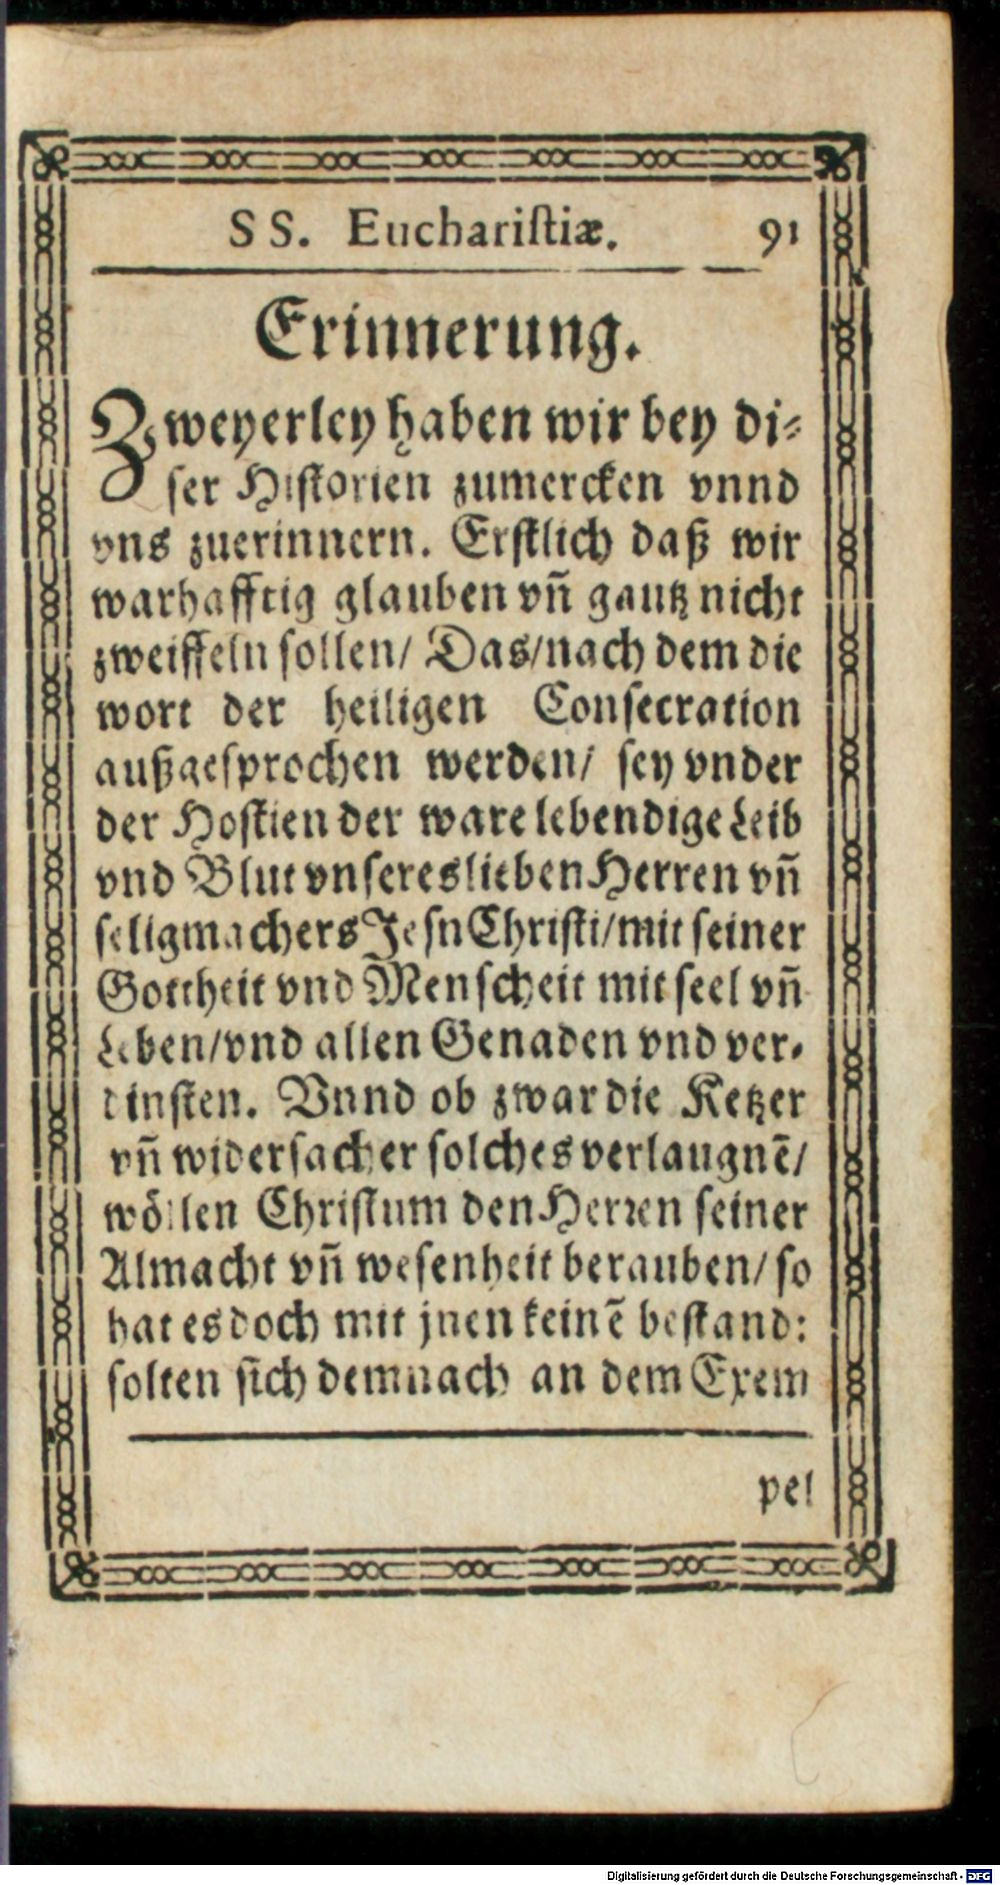 SS. Euchariſtiæ. 91
Erinnerung.
Zweyerley haben wir bey di⸗
ſer Hiſtorien zumercken vnnd
vns zuerinnern. Erſtlich daß wir
warhafftig glauben vñ gautz nicht
zweiffeln ſollen/ Das/nach dem die
wort der heiligen Conſecration
außgeſprochen werden/ ſey vnder
der Hoſtien der ware lebendige Leib
vnd Blut vnſeres lieben Herren vñ
ſeligmachers Jeſn Chriſti/mit ſeiner
Gottheit vnd Menſcheit mit ſeel vñ
Leben/vnd allen Genaden vnd ver⸗
dinſten. Vnnd ob zwar die Ketzer
vñ widerſacher ſolches verlaugnẽ/
wöllen Chriſtum den Herꝛen ſeiner
Almacht vñ weſenheit berauben/ ſo
hat es doch mit jnen keinẽ beſtand:
ſolten ſich demnach an dem Exem
pel
Digitalisierung gefördert durch die Deutsche Forschungsgemeinschaft - DFG